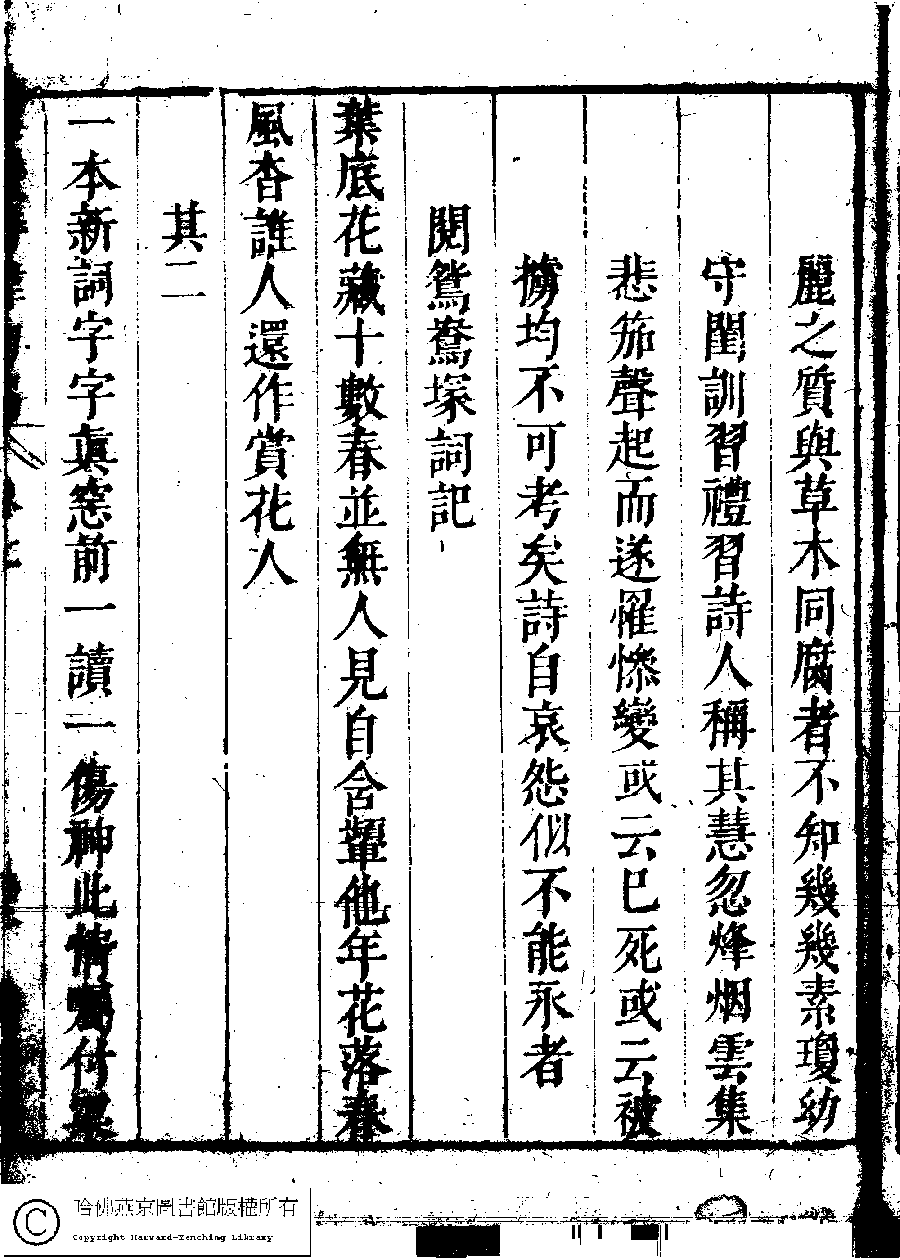 麗之質與草木同腐者不知幾幾素瓊幼
守閨訓習禮習詩人稱其慧忽烽烟雲集
悲笳聲起而遂罹慘變或云已死或云被
擄均不可考矣詩自哀怨似不能永者
閱鴛鴦塚詞記
葉底花藏十數春並無人見自含顰他年花落春
風杳誰人還作賞花人
其二
一本新詞字字真窓前一讀一傷神此情囑付
哈佛燕京圖書館版權所有
Copyright Harvard-Yenching Library